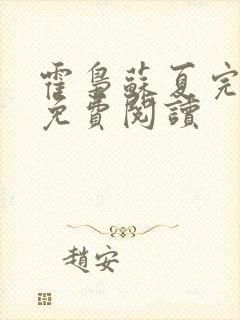 霍梟蘇夏完
免費閱讀
趙安